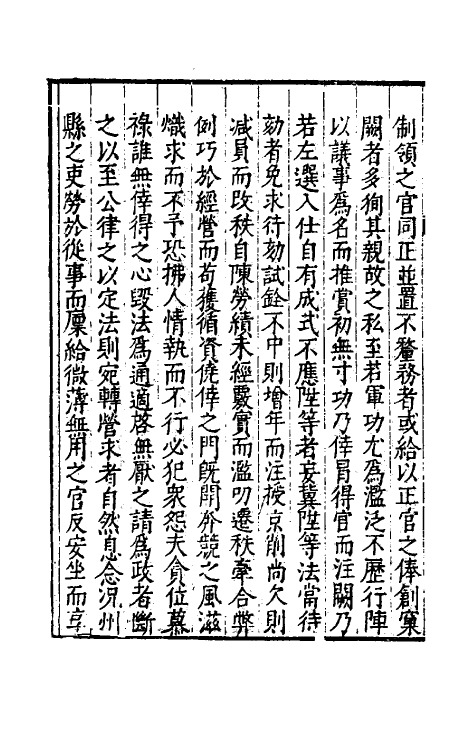 制領之官同正並置不釐務者或給以正官之俸創窠
闕者多狥其親故之私至若軍功尤為濫泛不歷行陣
以議事為名而推賞初無寸功乃倖冒得官而注闕乃
若左選入仕自有成式不應陞等者妄冀陞等法當待
劾者免求待劾試銓不中則增年而注授京削尚欠則
减員而改秩自陳勞績未經覈實而濫叨遷秩牽合弊
例巧於經營而苟獲循資僥倖之門旣開奔競之風滋
熾求而不予恐拂人情執而不行必犯衆怨夫貪位慕
祿誰無倖得之心毀法為通適啓無厭之請為政者斷
之以至公律之以定法則宛轉營求者自然息念况州
縣之吏勞於從事而廩給微薄無用之官反安坐而享